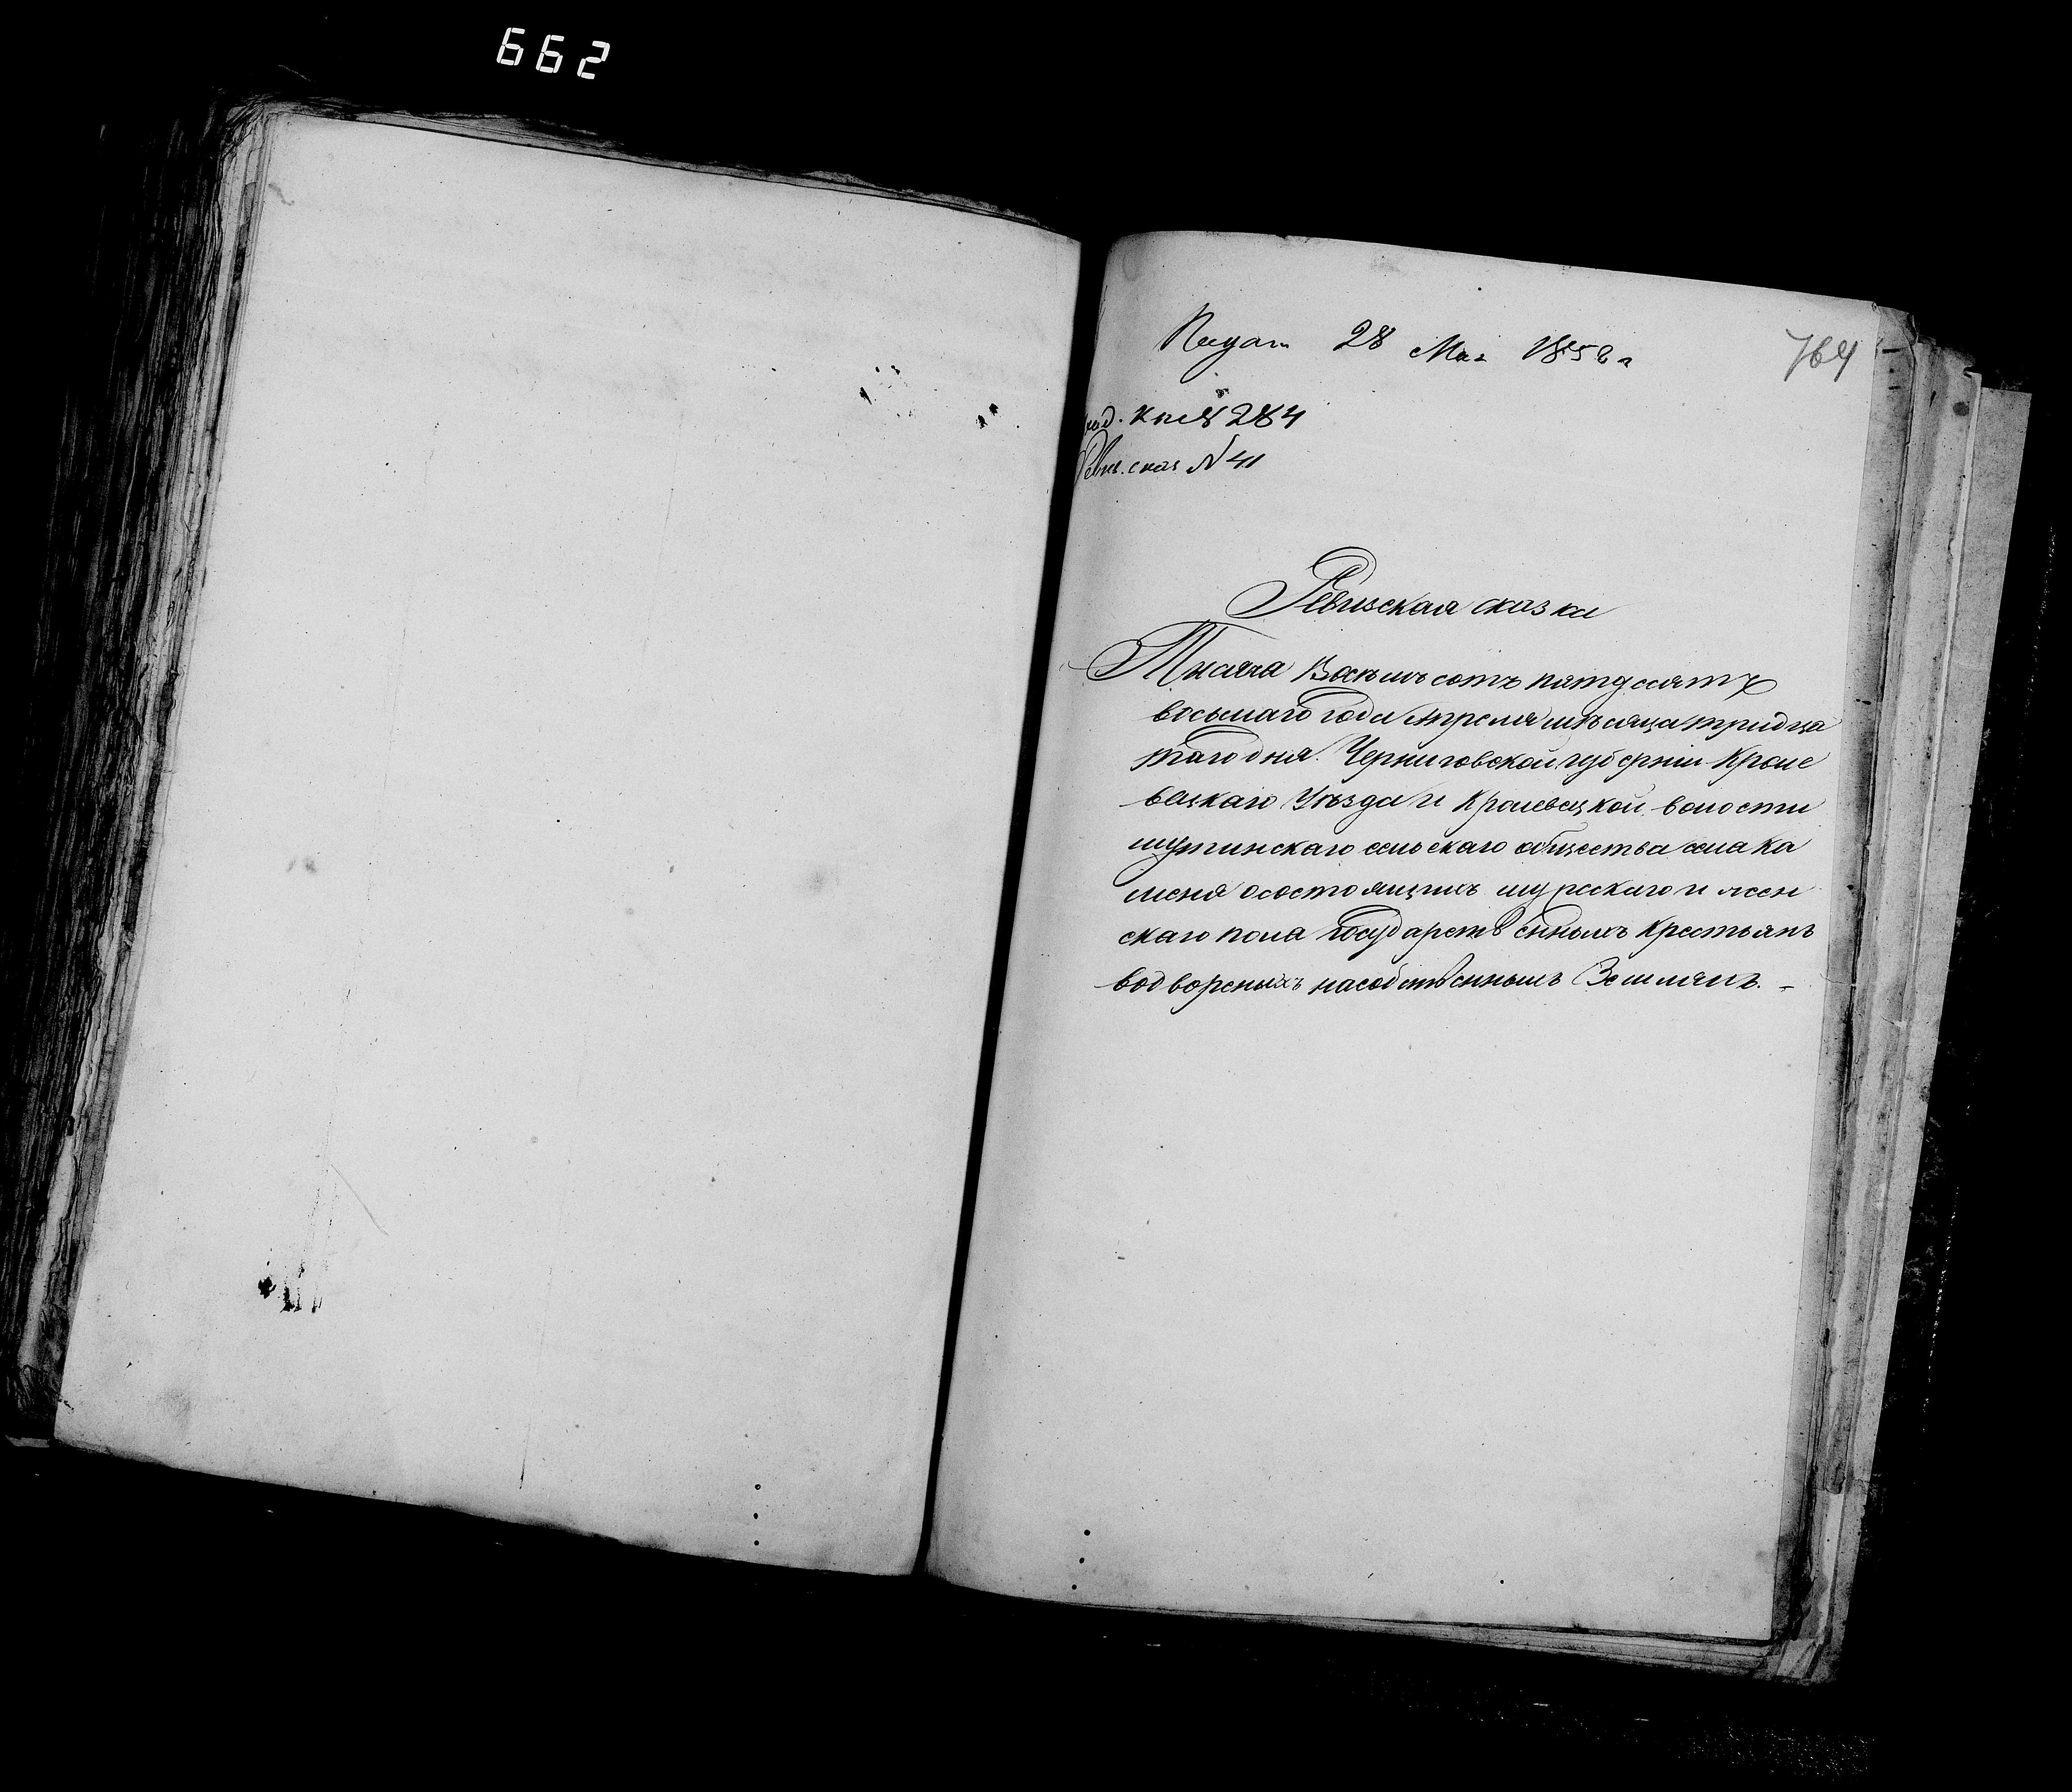 662
Подат 28 Мая 1858 г
764
под. кни 284
Ревиз. сказ N 41
Ревизская сказка
Тысяча Восемъсотъ пятдесятъ
восьмаго года Апреля мѣсяца тридца
таго дня. Черниговской губерніи Кроле
вецкаго Уѣзда и Кролевецкой волости
мутинскаго сельскаго общества села Ка
меня о состоящихъ мужескаго и жен
скаго пола Государственныхъ Крестьянъ
водвореныхъ на собственныхъ Земляхъ. -